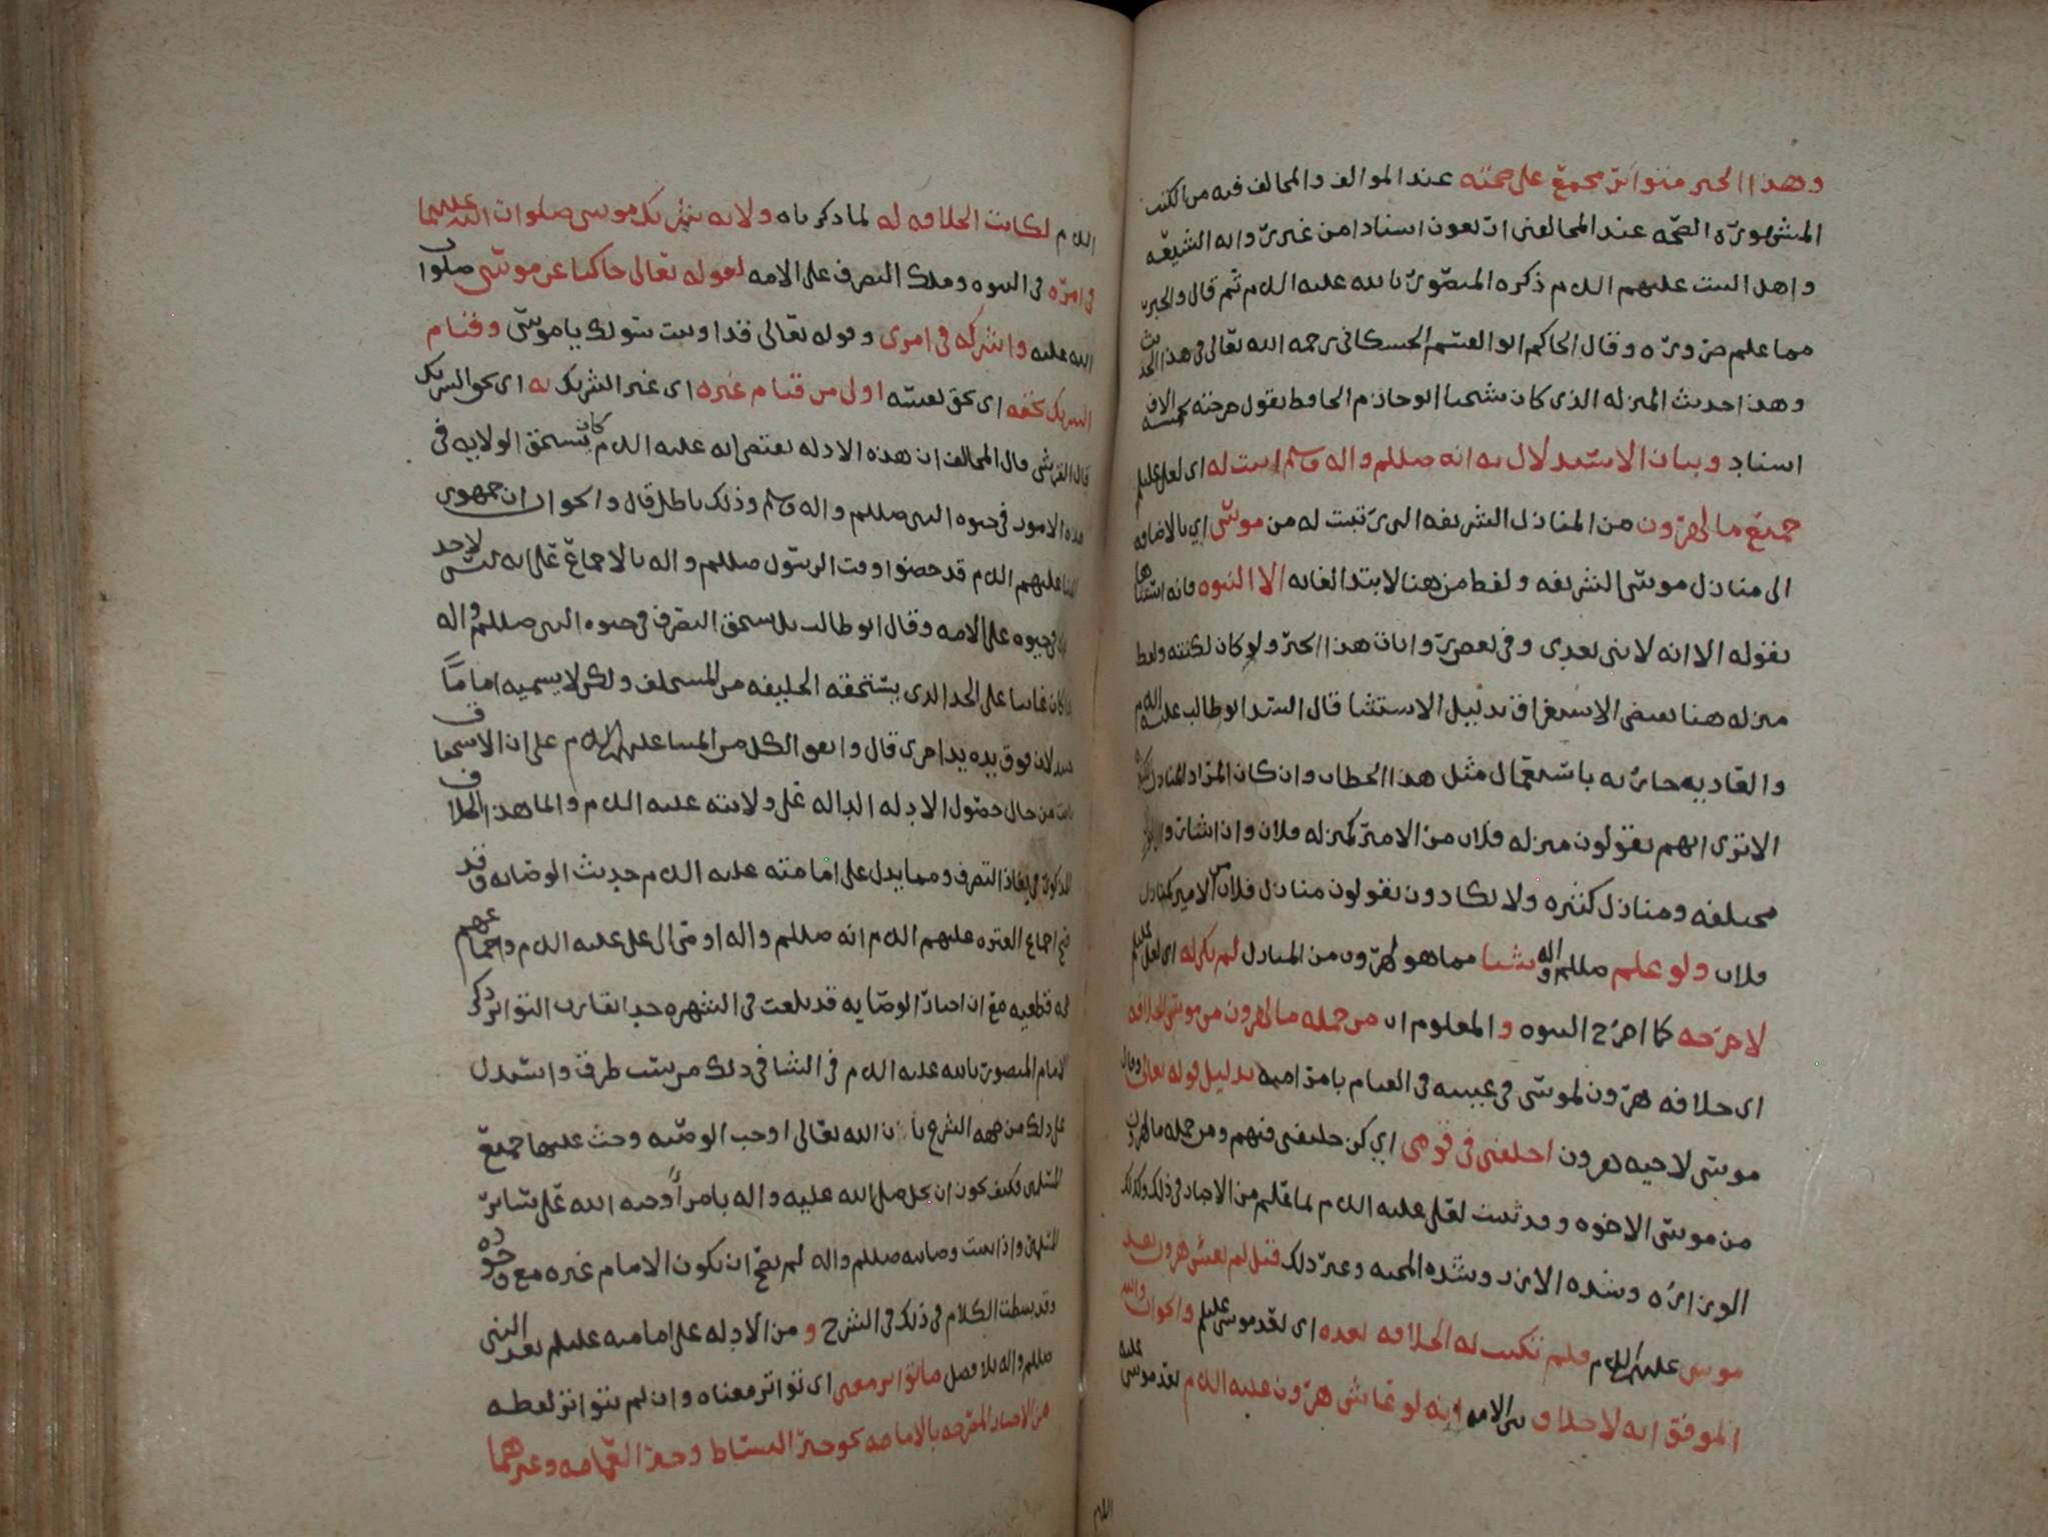 وهذا الخبر متواتر مجمع على صحته عند الموالف والمخالف فيه من الكتب
المشهوره الصحه عند المخالفين اربعون اسنادا من غير روايه الشيعه
واهل البيت عليهم السلم ذكره المنصور بالله عليه السلم ثم قال والخبر
مما علم ضروره وقال الحاكم ابو القسم الحسكاني رحمه الله تعالى في هذا الحديث
وهذا حديث المنزله الذي كان شيخنا ابو حازم الحافظ يقول خرجته بخمسه الاف
اسناد وبيان الاستدلال به انه صللم واله وسلم اثبت له اي لعلي عليلم
جميع ما لهرون من المنازل الشريفه التي تثبت له من موسى اي بالاضافه
الى منازل موسى الشريفه ولفظ من هنا لابتدا الغايه الا النبوه فانه استثناها
بقوله الا انه لا نبي بعدي وفي بعض روايات هذا الخبر ولو كان لكنته ولفظ
منزله هنا يفيد الاستغراق بدليل الاستثنا قال السيد ابو طالب عليه السلم
والعاد يه جاريه باستعمال مثل هذا الخطاب وان كان المراد المنازل
الا ترى انهم يقولون منزله فلان من الامير كمنزله فلان وان اشاروا
مختلفه ومنازل كثيره ولا يكادون يقولون منازل فلان من الامير كمنازل
فلان ولو علم صللم واله شيئا مما هو لهرون من المنازل لم يكن له اي لعلي عليلم
لاخرجه كما اخرج النبوه والمعلوم ان من جمله ما لهرون من موسى الخلافه
اي خلافه هرون لموسى في غيبته في القيام بامر امته بدليل قوله تعالى وقال
موسى لاخيه هرون اخلفني في قومي اي كن خليفتي فيهم ومن جمله ما لهرون
من موسى الاخوه وقد ثبت لعلي عليه السلم لما علم من الاخبار في ذلك وكذلك
الوزاره وشده الازر وشده المحبه وغير ذلك قيل لم يعش هرون بعد
موسى عليهما السلم فلم تثبت له الخلافه بعده اي بعد موسى عليلم والجواب والله
الموفق انه لا خلاف بين الامه انه لو عاش هرون عليه السلم بعد موسى عليه
السلم
السلم لكانت الخلافه له لما ذكرناه ولانه شريك موسى صلوات الله عليهما
في امره في النبوه وملك التصرف على الامه لقوله تعالى حاكيا عن موسى صلوات
الله عليه واشركه في امري وقوله تعالى قد اوتيت سولك يا موسى وقيام
الشريك بحقه اي بحق نفسه اولى من قيام غيره اي غير الشريك به اي بحق الشريك
قال القرشي قال المخالف ان هذه الادله تقتضي انه عليه السلم كان يستحق الولايه في
هذه الامور في حيوه النبي صللم واله وسلم وذلك باطل قال والجواب ان جمهور
ائمتنا عليهم السلم قد خصوا وقت الرسول صللم واله بالاجماع على انه ليس لاحد
في حيوه على الامه وقال ابو طالب بل يستحق التصرف في حيوه النبي صللم واله
اذا كان غايبا على الحد الذي يستحقه الخليفه من المستخلف ولكن لا يسميه اماما
لان فوق يده يدا اخرى قال واتفق الكل من ائمتنا عليهم السلم على ان الاستحقاق
ثابت من حال حصول الادله الداله على ولايته عليه السلم وانما هذا الخلاف
المذكور في نفاذ التصرف ومما يدل على امامته عليه السلم حديث الوصايه وقد
صح اجماع العتره عليهم السلم انه صللم واله اوصى الى علي عليه السلم واجماعهم
حجه قطعيه مع ان اخبار الوصايه قد بلغت في الشهره حدا يقارب التواتر ذكر
الامام المنصور بالله عليه السلم في الشافي ذلك من ست طرق واستدل
على ذلك من جهه الشرع بان الله تعالى اوجب الوصيه وحث عليها جميع
المسلمين فكيف يجوز ان يخل صلى الله عليه واله بامر اوجبه الله على سائر
المسلمين واذا ثبت وصايته صللم واله لم يصح ان يكون الامام غيره مع وجوده
وقد بسطت الكلام في ذلك في الشرح ومن الادله على امامته عليلم بعد النبي
صللم واله بلا فصل ما تواتر معنى اي تواتر معناه وان لم يتواتر لفظه
من الاخبار المصرحه بالامامه نحو خبر البساط وخبر العمامه وغيرهما